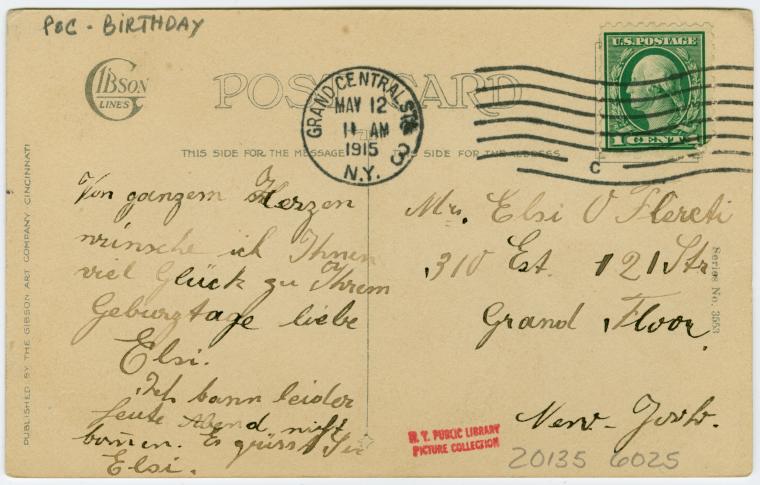 POC - BIRTHDAY
GIBSON
LINES
POST CARD
GRAND CENTRAL STA.
MAY 12
11 AM
1915
N.Y.
3
U.S. POSTAGE
1 CENT 1
C
THIS SIDE FOR THE MESSAGE
THIS SIDE FOR THE ADDRESS
PUBLISHED BY THE GIBSON ART COMPANY, CINCINNATI
Von ganzem Herzen
wünsche ich Ihnen
viel Glück zu Ihrem
Geburztage liebe
Elsi.
Ich kann leider
heute Abend nicht
kommen. Es grüsst Sie
Elsi.
Mrs. Elsi
310 Est. 121 Str
Grand Floor
New-York.
Series No. 3553
N. Y. PUBLIC LIBRARY
PICTURE COLLECTION
20135 6025